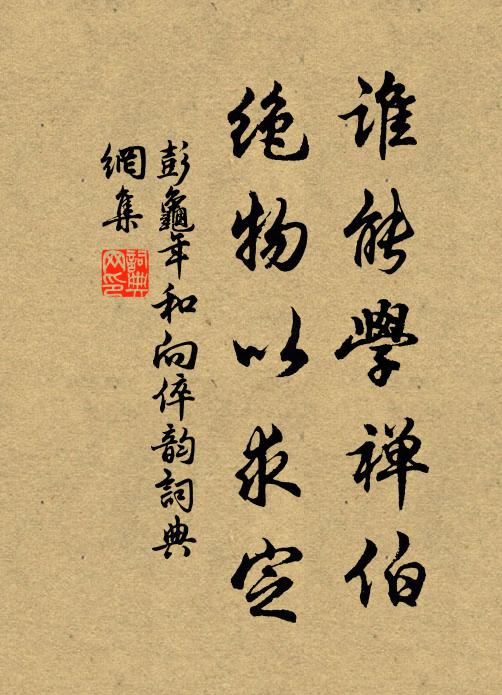 誰能學禅伯
绝物以求定
彭龜年和向倅韵詞典
網集
詞典网印